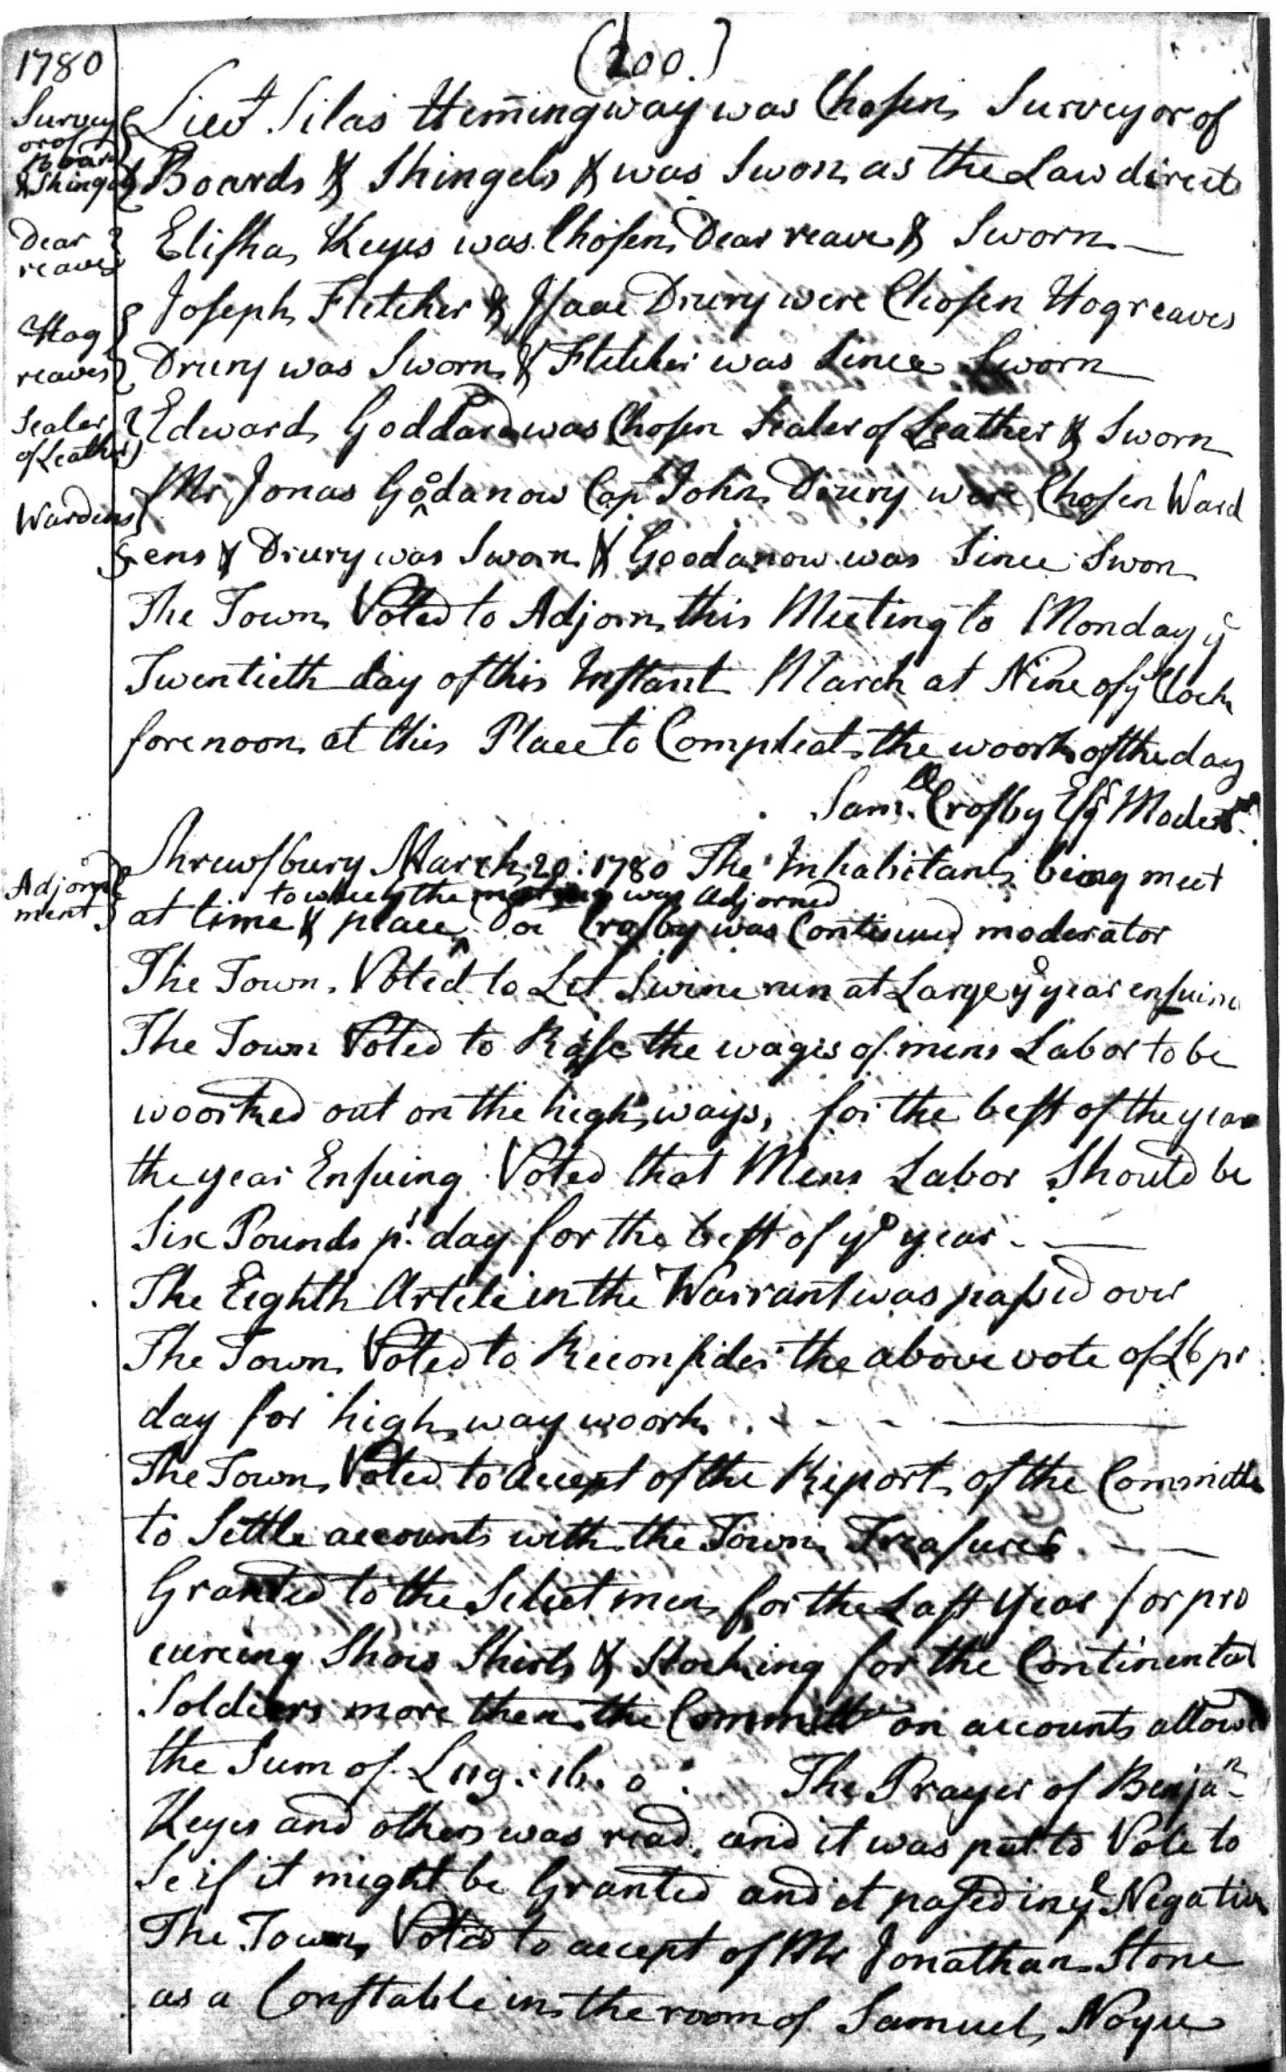 1780
(200.)
Survey
ors of
Boards
& Shingels
Lieut Silas Hemingway was Chosen Surveyor of
Boards & Shingels & was Swon as the Law direct
Dear
reaves
Elisha Keyes was Chosen Dear reave & Sworn
Hog
reaves
Joseph Fletcher & Isaac Drury were Chosen Hogreaves
Drury was Sworn & Fletcher was Since Sworn
Sealer
of Leather
Edward Goddard was Chosen Sealer of Leather & Sworn
Wardens
Mr Jonas Goodanow Capt John Drury were Chosen Ward
ens & Drury was Sworn & Goodanow was Since Swon
The Town Voted to Adjorn this Meeting to Monday ye
Twentieth day of this Instant March at Nine of ye Clock
forenoon at this Place to Compleat the woork of the day
Saml Crosby Esqr Moderr
Adjorn
ment
Shrewsbury March 20: 1780 The Inhabitants being meet
to which the meeting was Adjorned
at time & place Doc Crosby was Continued moderator
The Town Voted to Let Swine run at Large ye year ensuing
The Town Voted to Rase the wages of mens Labor to be
woorked out on the high ways, for the best of the year
the year Ensuing Voted that Mens Labor Should be
Six Pounds pr day for the best of ye year
The Eighth Artcle in the Warrant was passed over
The Town Voted to Reconsider the above vote of £6 pr
day for high way woork
The Town Voted to Accept of the Report of the Committe
to Settle accounts with the Town Treasurer
Granted to the Select men for the Last Year for pro
cureing Shoes Shirts & Stocking for the Continental
Soldiers more then the Committee on accounts allowed
the Sum of £119..16..0 The Prayer of Benjan
Keyes and others was read and it was put to Vote to
Se if it might be Granted and it pased in ye Negative
The Town Voted to accept of Mr Jonathan Stone
as a Constable in the room of Samuel Noyes